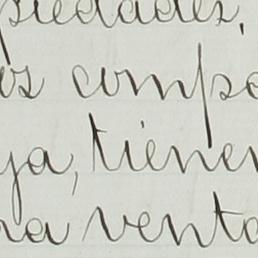 piedades.
os compo
ya, tienen
ra venta